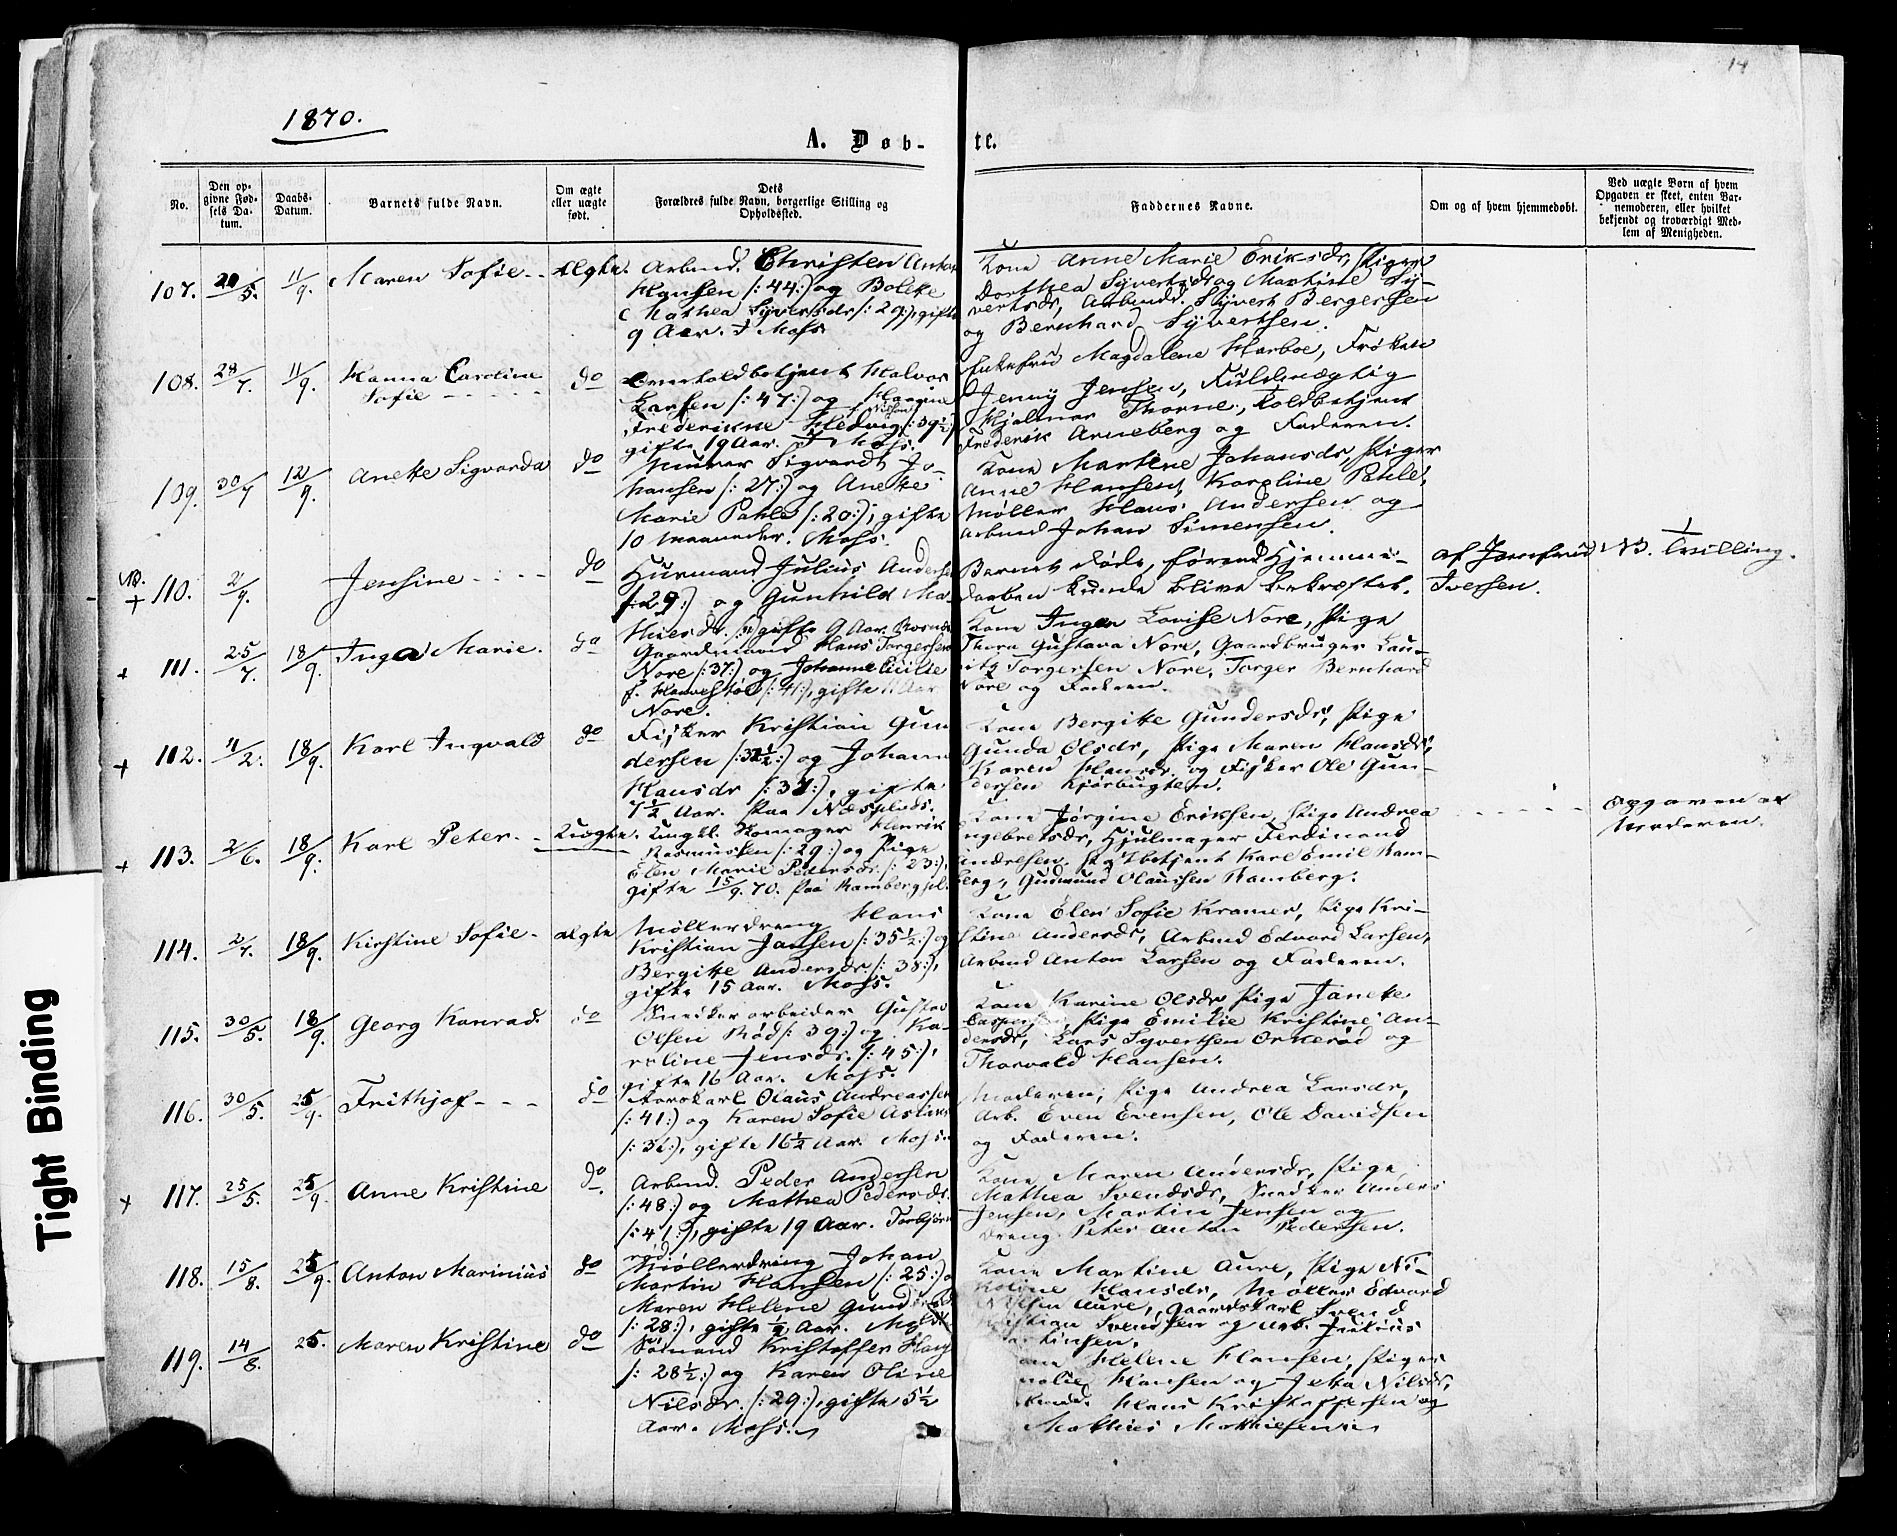 14
1870.
A. Døb-
te.
No.
Den op-
givne Fød-
sels Da-
tum.
Daabs-
Datum.
Barnets fulde Navn.
Om ægte
eller uægte
født.
Dets
Forældres fulde Navn, borgerlige Stilling og
Opholdssted.
Faddernes Navne.
Om og af hvem hjemmedøbt.
Ved uægte Børn af hvem
Opgaven er skeet, enten Bar-
nemoderen, eller hvilket
bekjendt og troværdigt Med-
lem af Menigheden.
107. /5. 11/9. Maren Sofie - - Ægte.
Arbmd. Christen Anton
Hansen /: 44:/ og Bolette
Mathea Syversdr /: 29:/, gifte
9 Aar. Moss
Kone Anne Marie Eriksdr, Piger
Dorthea Syvertsdr og Martine Sy-
vertsdr, Arbmdd. Syvert Bergersen
og Bernhard Syvertsen.
108. 28/7. 11/9. Hanna Caroline
Sofie - - - - do
Overtoldbetjent Halvor
Larsen /: 47:/ og
Frederikke Hedvig Nilsen /: 39½:/
gifte 19 Aar. Moss.
Enkefrú Magdalene Harboe, Frøken
Jenny Jensen, Fúldmægtig
Hjalmar Thorne, Toldbetjent
Frederik Arneberg og Faderen.
109. 30/7 12/9. Anette Sigvarda do
Múrer Sigvardt Jo-
hansen /: 27:/ og Anette
Marie Pahle /: 20:/, gifte
10 Maaneder. Moss.
Kone Martine Johansdr, Piger
Anne Hansen, Karoline Pahle,
Møller Hans Andersen og
Arbmd Johan Simensen.
NB.
+ 110. 2/9. Jensine - - - - do
Húsmand Julius Anders
/: 29:/ og Gunhild Ma-
thiesdr. gifte 9 Aar.
Barnet døde, førend Hjemme-
daaben kunde blive bekræftet.
af Jomfrú
Iversen.
NB. Tvilling.
+ 111. 25/7. 18/9. Inga Marie. do
Gaardmand Hans Torgersen
Nore /: 37:/ og Johanne
f. /: 41:/, gifte 11 Aar
Nore.
Kone Inger Lovise Nore, Pige
Thora Gustava Nore, Gaardbruger Lau-
ritz Torgersen Nore, Torger Bernhard
Nore og Faderen.
+ 112. /2. 18/9. Karl Ingvald do
Fisker Kristian Gun
dersen /: 32½:/ og Johann
Hansdr /: 37:/, gifte
7½ Aar. Paa
Kone Bergitte Gundersdr, Pige
Gunda Olsdr, Pige Maren Hansdr,
Karen Hansdr. og Fisker Ole Gun-
dersen Kjørbugten.
+ 113. 2/6. 18/9. Karl Peter. - Uægte.
Ungk. Skomager Henrik
Rasmussen /: 29:/ og Pige
Elen Marie Pedersdr /: 23:/,
gifte 15/9. 70. Paa Ramberg pl.
Kone Jørgine Eriksen, Pige Andrea
Engebretsdr, Hjulmager Ferdinand
Andresen, Karl Emil Ram-
berg, Gudmund Olaussen Ramberg.
Opgaven af
Moderen.
114. 2/7. 18/9. Kirstine Sofie - Ægte
Møllerdreng Hans
Kristian Jansen /: 35½:/ og
Bergitte Andersdr. /: 38:/,
gifte 15 Aar. Moss.
Kone Elen Sofie Kramer, Pige Kri-
stine Andersdr, Arbmd Edvard Larsen,
Arbmd Anton Larsen og Faderen.
115. 30/5. 18/9. Georg Konrad. do
Snedkerarbeider Gustav
Olsen Rød /: 39:/ og Ka-
roline Jensdr. /: 45:/,
gifte 16 Aar. Moss.
Kone Karine Olsdr, Pige Janeke
Caspersen, Pige Emilie Kristine An-
dersdr, Lars Syvertsen Orkerød og
Thorvald Hansen.
116. 30/5. 25/9. Frithjof - - - do
Olaus Andreassen
/: 41:/ og Karen Sofie
/: 31:/, gifte 16½ Aar. Moss.
Moderen, Pige Andrea Larsdr,
Arb. Even Evensen, Ole Davidsen
og Faderen.
+ 117. 25/5. 25/9. Anne Kristine do.
Arbmd. Peder Andersen
/: 48:/ og Mathea Pedersdr.
/: 41:/, gifte 19 Aar. Torbjørn
rød
Kone Maren Andersdr, Pige
Mathea Svendsdr, Snedker Anders
Jensen, Martin Jensen og
Dreng Peter Anton Pedersen.
118. 15/8. 25/9. Anton Marinius do
Møllerdreng Johan
Martin Hansen /: 25:/ o
Maren Helene
/: 28:/, gifte ½ Aar. Moss
Kone Martine Aure, Pige Ni-
koline Hansdr, Møller Edvard
Aure, Gaardskarl Svend
Kristian Svendsen og Arb. Julius
119. 14/8. 25. Maren Kristine do
Sømand Kristoffer
/: 28½:/ og Karen Oline
Nilsdr. /: 29:/, gifte 5½
Aar. Moss.
Helene Hansen, Piger
Hansen og Nilsdr,
Hans Kristoffersen og
Mathias Mathiesen.
Tight Binding